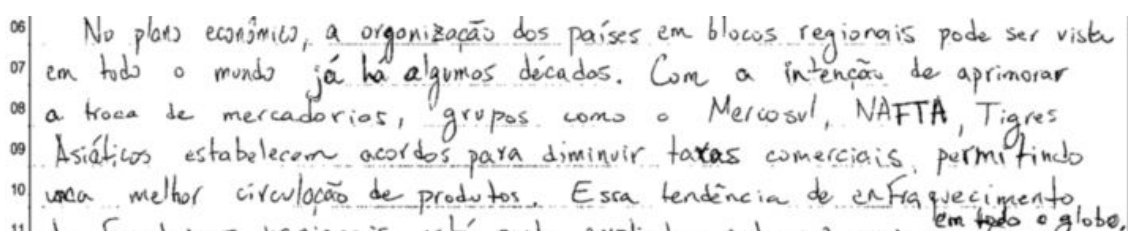 06 No plano econômico, a organização dos países em blocos regionais pode ser vista
07 em todo o mundo já há algumas décadas. Com a intenção de aprimorar
08 a troca de mercadorias, grupos como o Mercosul, NAFTA, Tigres
09 Asiáticos estabelecem acordos para diminuir taxas comerciais, permitindo
10 uma melhor circulação de produtos. Essa tendência de enfraquecimento
em todo o globo,
11